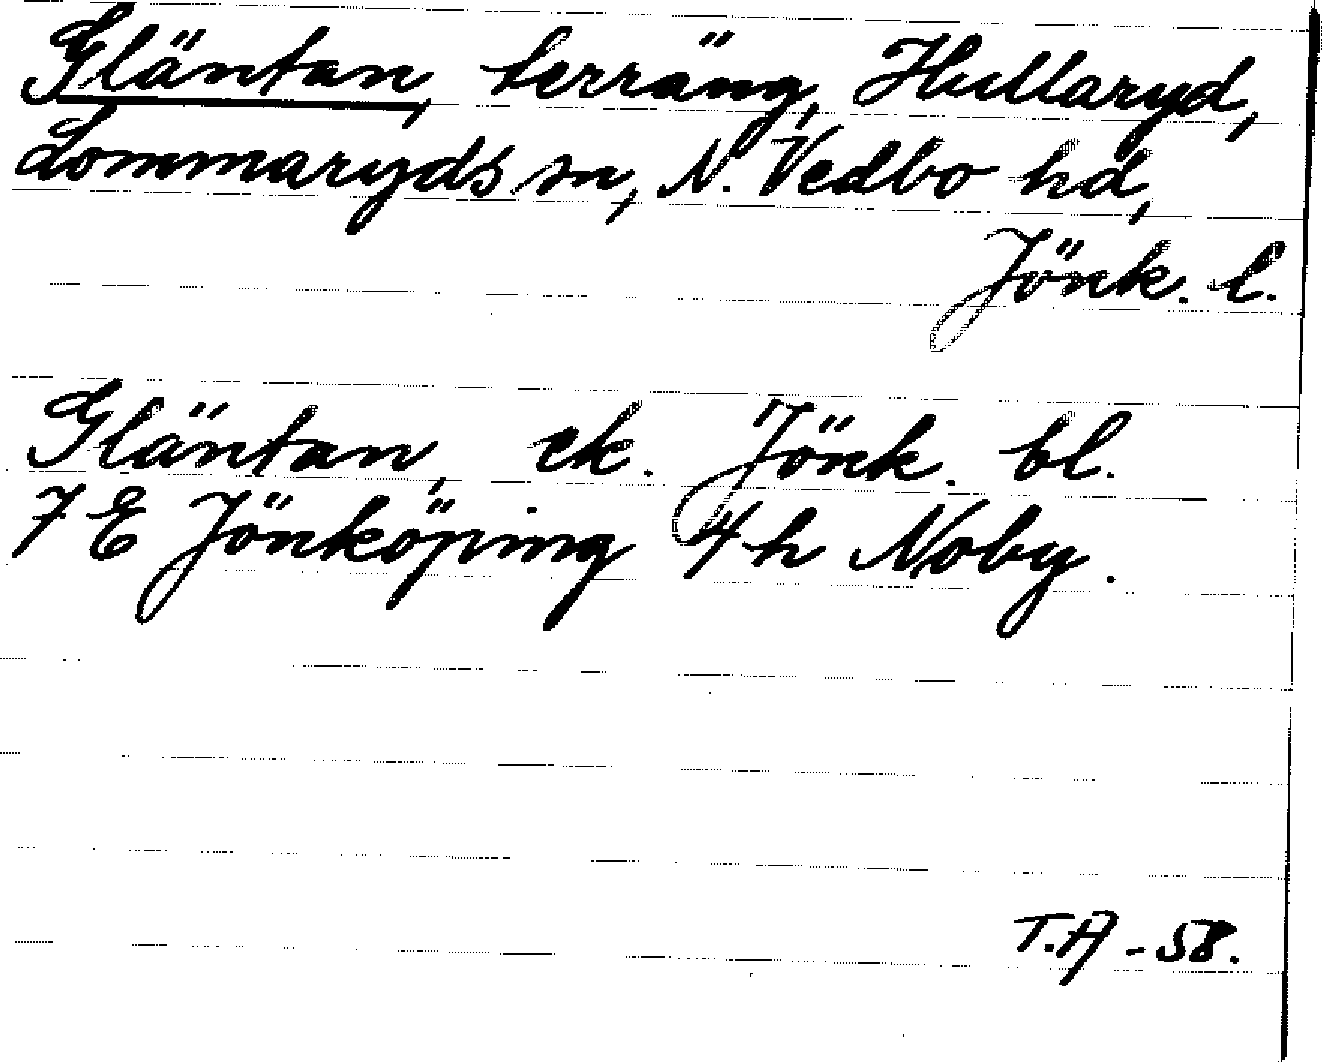 Gläntan, terräng, Hullaryd,
Lommaryds sn, N. Vedbo hd,
Jönk. l.
Gläntan, ek. Jönk. bl.
7 E Jönköping 4 h Noby.
T.A - 58.